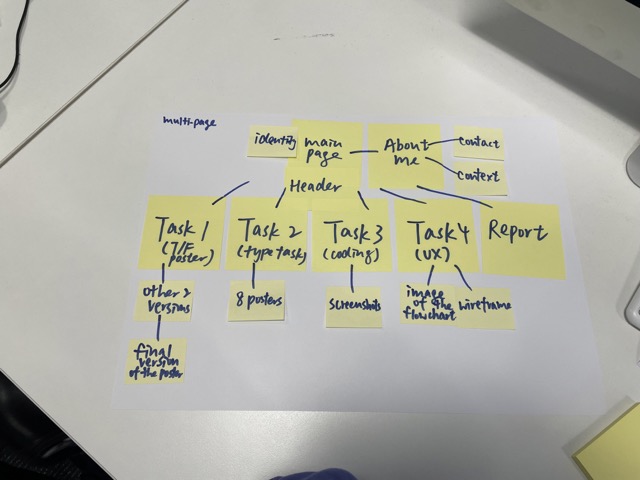 multi-page
identity
main
page
Header
About
me
contact
context
Task 1
(T/F
poster)
Task 2
(type task)
Task 3
(coding)
Task 4
(UX)
Report
other 2
versions
8 posters
screenshots
image
of the
flowchart
wireframe
final
version
of the poster